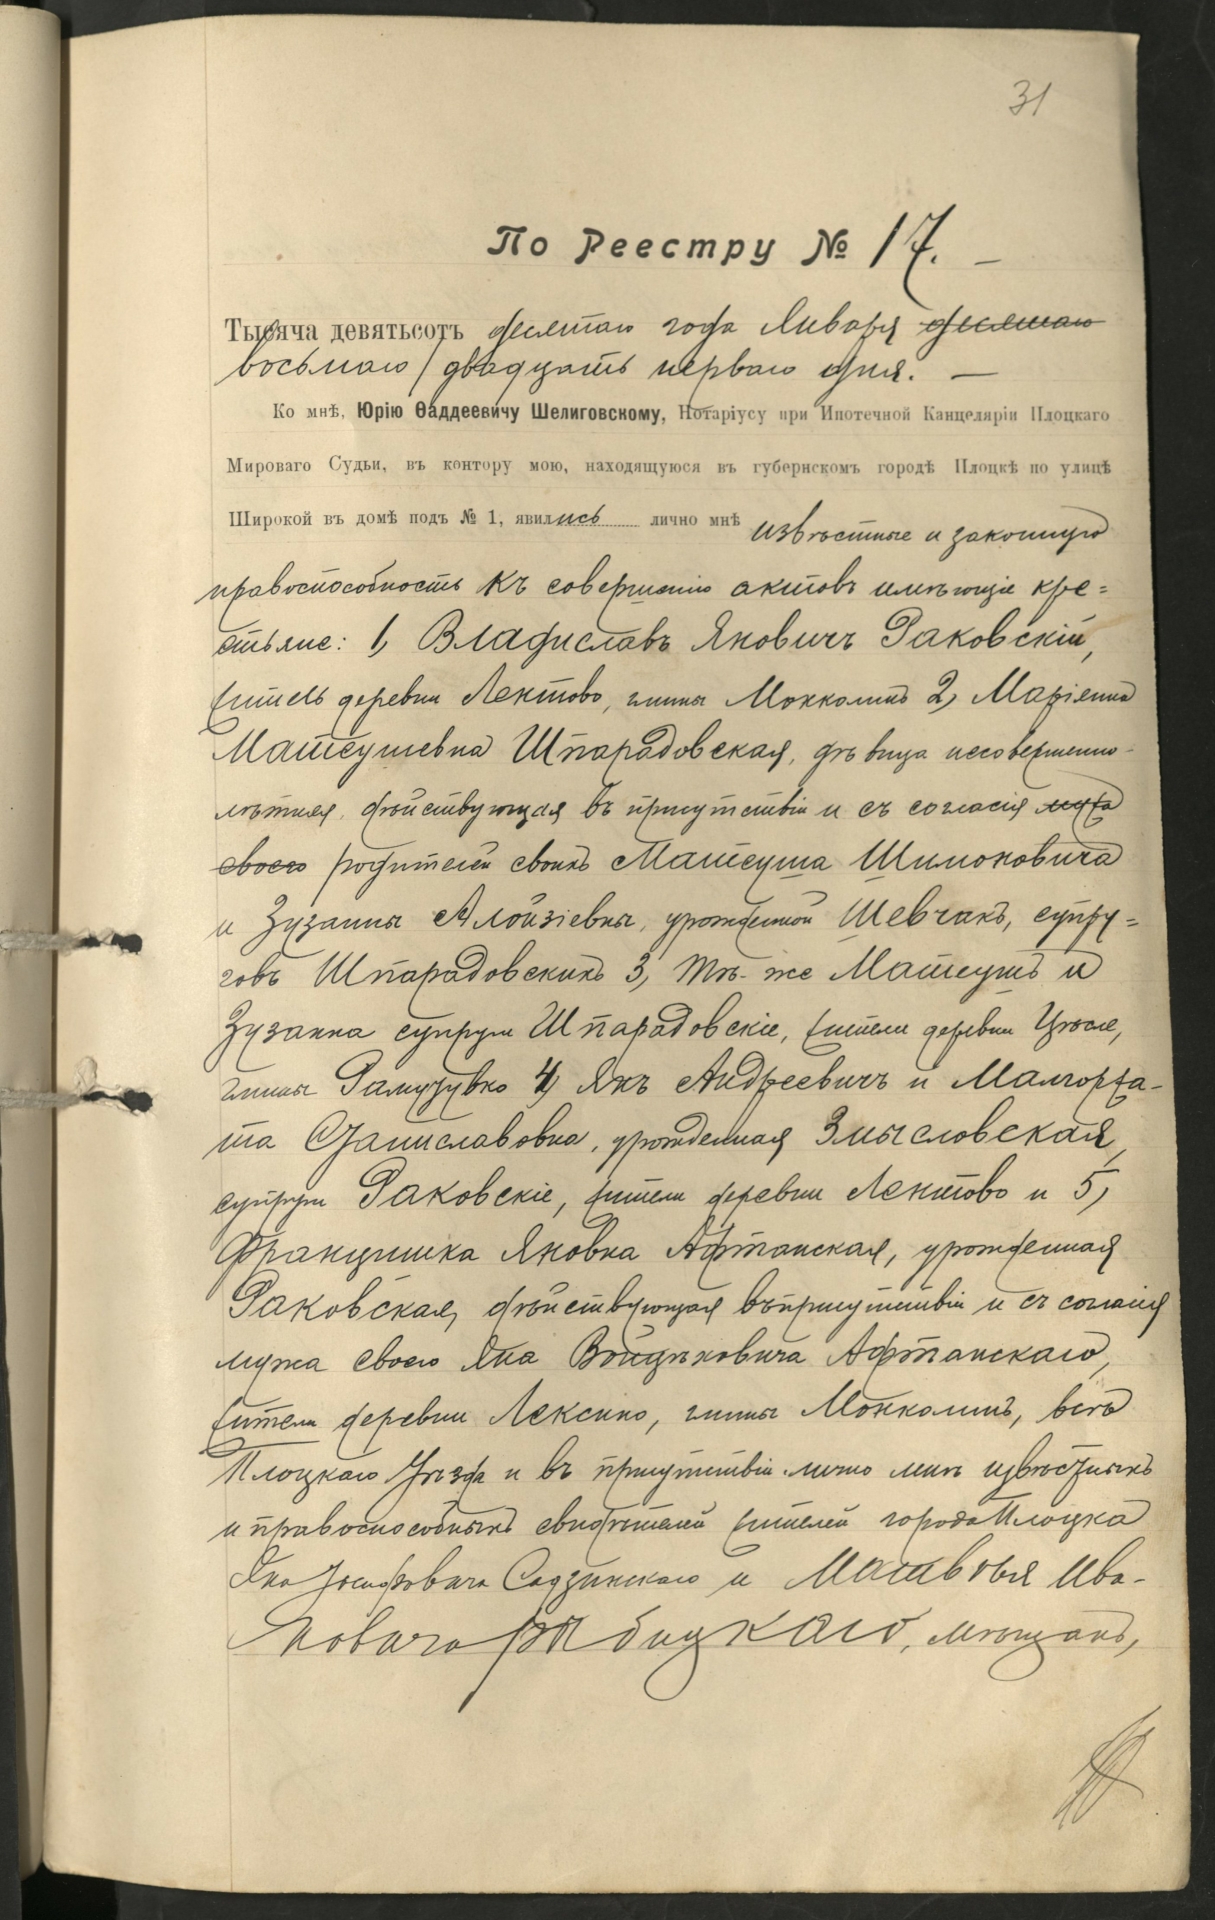 31
По Реестру № 17. —
Тысяча девятьсотъ десятаго года Января десятаго
восьмаго / двадцать перваго дня. —
Ко мнѣ, Юрію Ѳаддеевичу Шелиговскому, Нотаріусу при Ипотечной Канцеляріи Плоцкаго
Мироваго Судьи, въ контору мою, находящуюся въ губернскомъ городѣ Плоцкѣ по улицѣ
Широкой въ домѣ подъ № 1, явились лично мнѣ извѣстные и законную
правоспособность къ совершенію актовъ имѣющіе кре=
стьяне: 1, Владиславъ Яновичъ Раковскій,
житель деревни Лентово, гмины 2, Маріянна
Матеушевна Шпарадовская, дѣвица несовершенно-
лѣтняя, дѣйствующая въ присутствіи и съ согласія мужа
своего родителей своихъ Матеуша Шимоновича
и Зузанны Алойзіевны, урожденной Шевчакъ, супру=
говъ Шпарадовскихъ 3, тѣ-же Матеушъ и
Зузанна супруги Шпарадовскіе, жители деревни Цѣсле,
гмины Рамутувко 4, Янъ Андреевичъ и Малгоржа-
та Станиславовна, урожденная Змысловская,
супруги Раковскіе, жители деревни Лентово и 5,
Францишка Яновна Афтанская, урожденная
Раковская, дѣйствующая въ присутствіи и съ согласія
мужа своего Яна Войцѣховича Афтанскаго,
жители деревни Лексино, гмины всѣ
Плоцкаго Уѣзда и въ присутствіи лично мнѣ извѣстныхъ
и правоспособныхъ свидѣтелей жителей города Плоцка
Яна Іосифовича Садзинскаго и Матвѣя Ива-
новича Рыбицкаго, мѣщанъ,